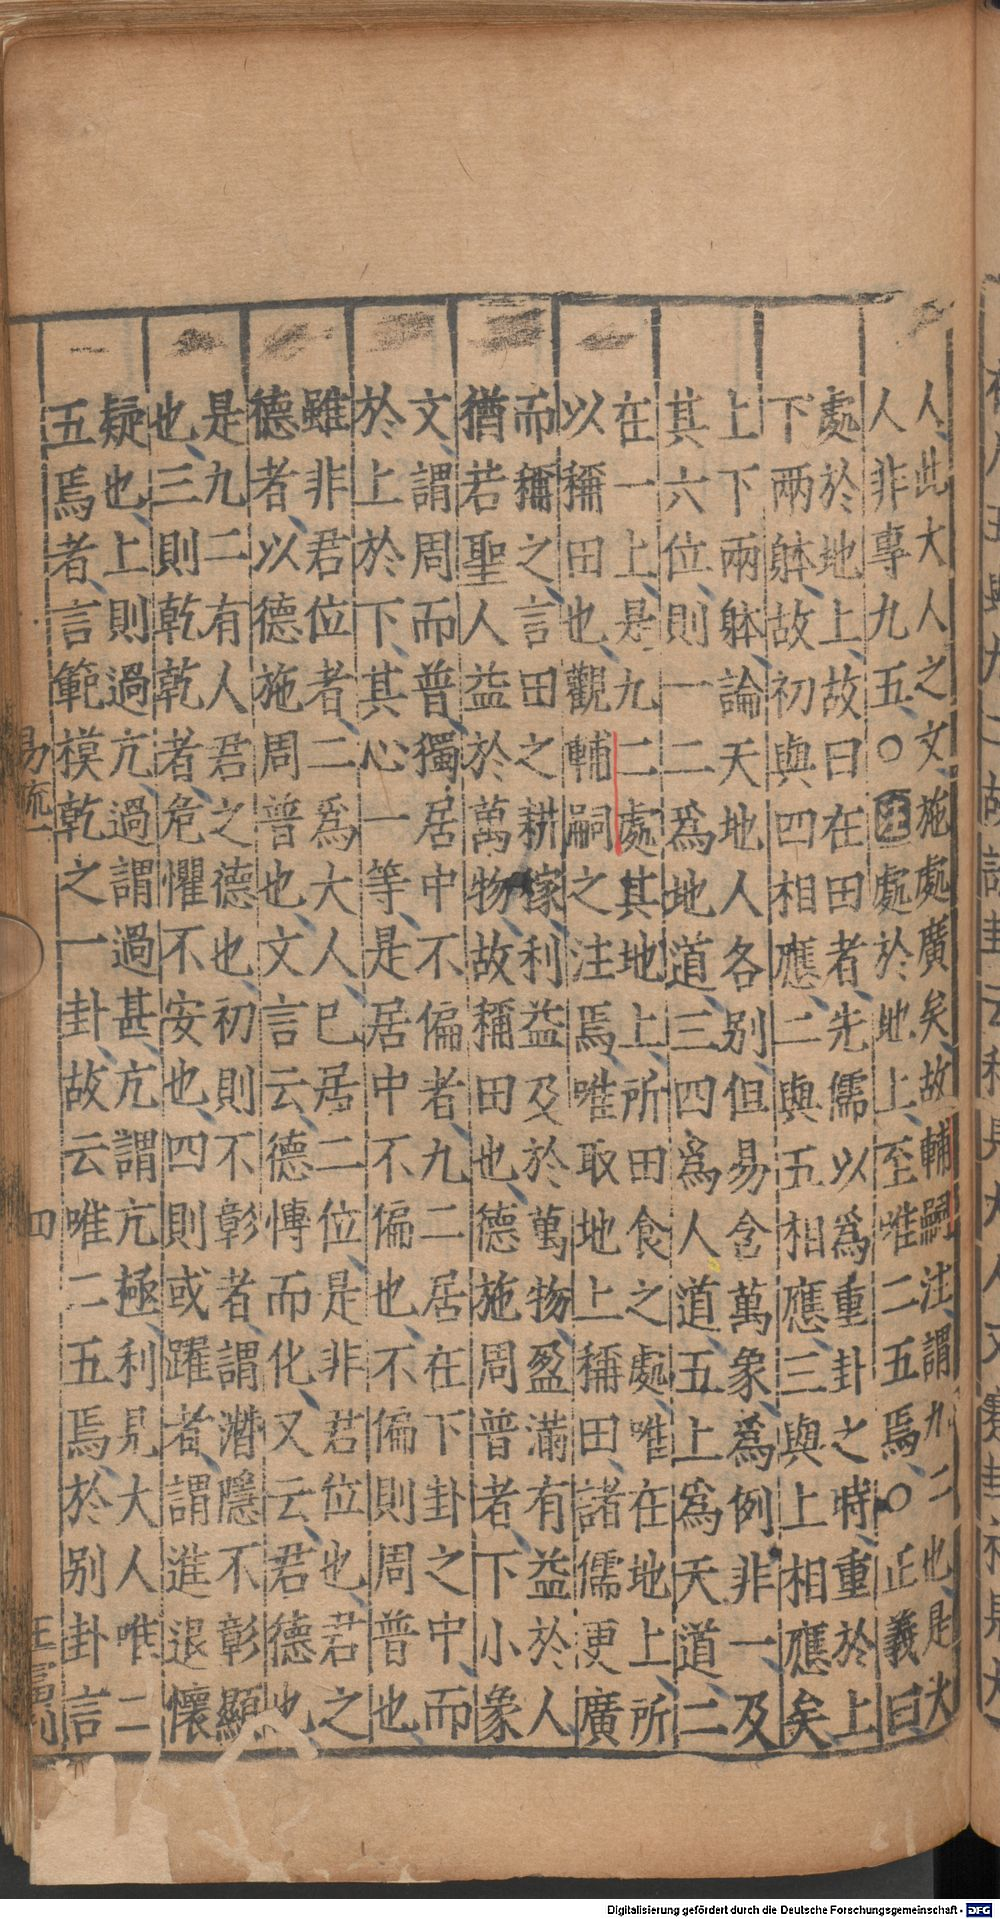 人此大人之文施處廣矣故輔嗣注謂九二也是大
人非專九五○注處於地上至唯二五焉○正義曰
處於地上故曰在田者先儒以爲重卦之時重於上
下兩躰故初與四相應二與五相應三與上相應矣
上下兩躰論天地人各別但易含萬象爲例非一及
其六位則一二爲地道三四爲人道五上爲天道二
在一上是九二處其地上所田食之處唯在地上所
以稱田也觀輔嗣之注焉唯取地上稱田諸儒更廣
而稱之言田之耕稼利益及於萬物盈滿有益於人
猶若聖人益於萬物故稱田也德施周普者下小象
文謂周而普獨居中不偏者九二居在下卦之中而
於上於下其心一等是居中不偏也不偏則周普也
雖非君位者二爲大人已居二位是非君位也君之
德者以德施周普也文言云德慱而化又云君德也
是九二有人君之德也初則不彰者謂潛隱不彰顯
也三則乾乾者危懼不安也四則或躍者謂進退懷
疑也上則過亢過謂過甚亢謂亢極利見大人唯二
五焉者言範模乾之一卦故云唯二五焉於別卦言
易疏一 四
Digitalisierung gefördert durch die Deutsche Forschungsgemeinschaft - DFG